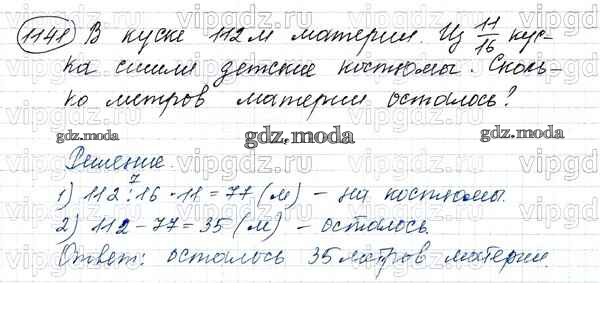 1141 В куске 112 м материи. Из 11/16 кус-
ка сшили детские костюмы. Сколь-
ко метров материи осталось?
gdz.moda gdz.moda gdz.moda
Решение.
7
1) 112 : 16 · 11 = 77 (м) – на костюмы.
2) 112 – 77 = 35 (м) – осталось.
Ответ: осталось 35 метров материи.